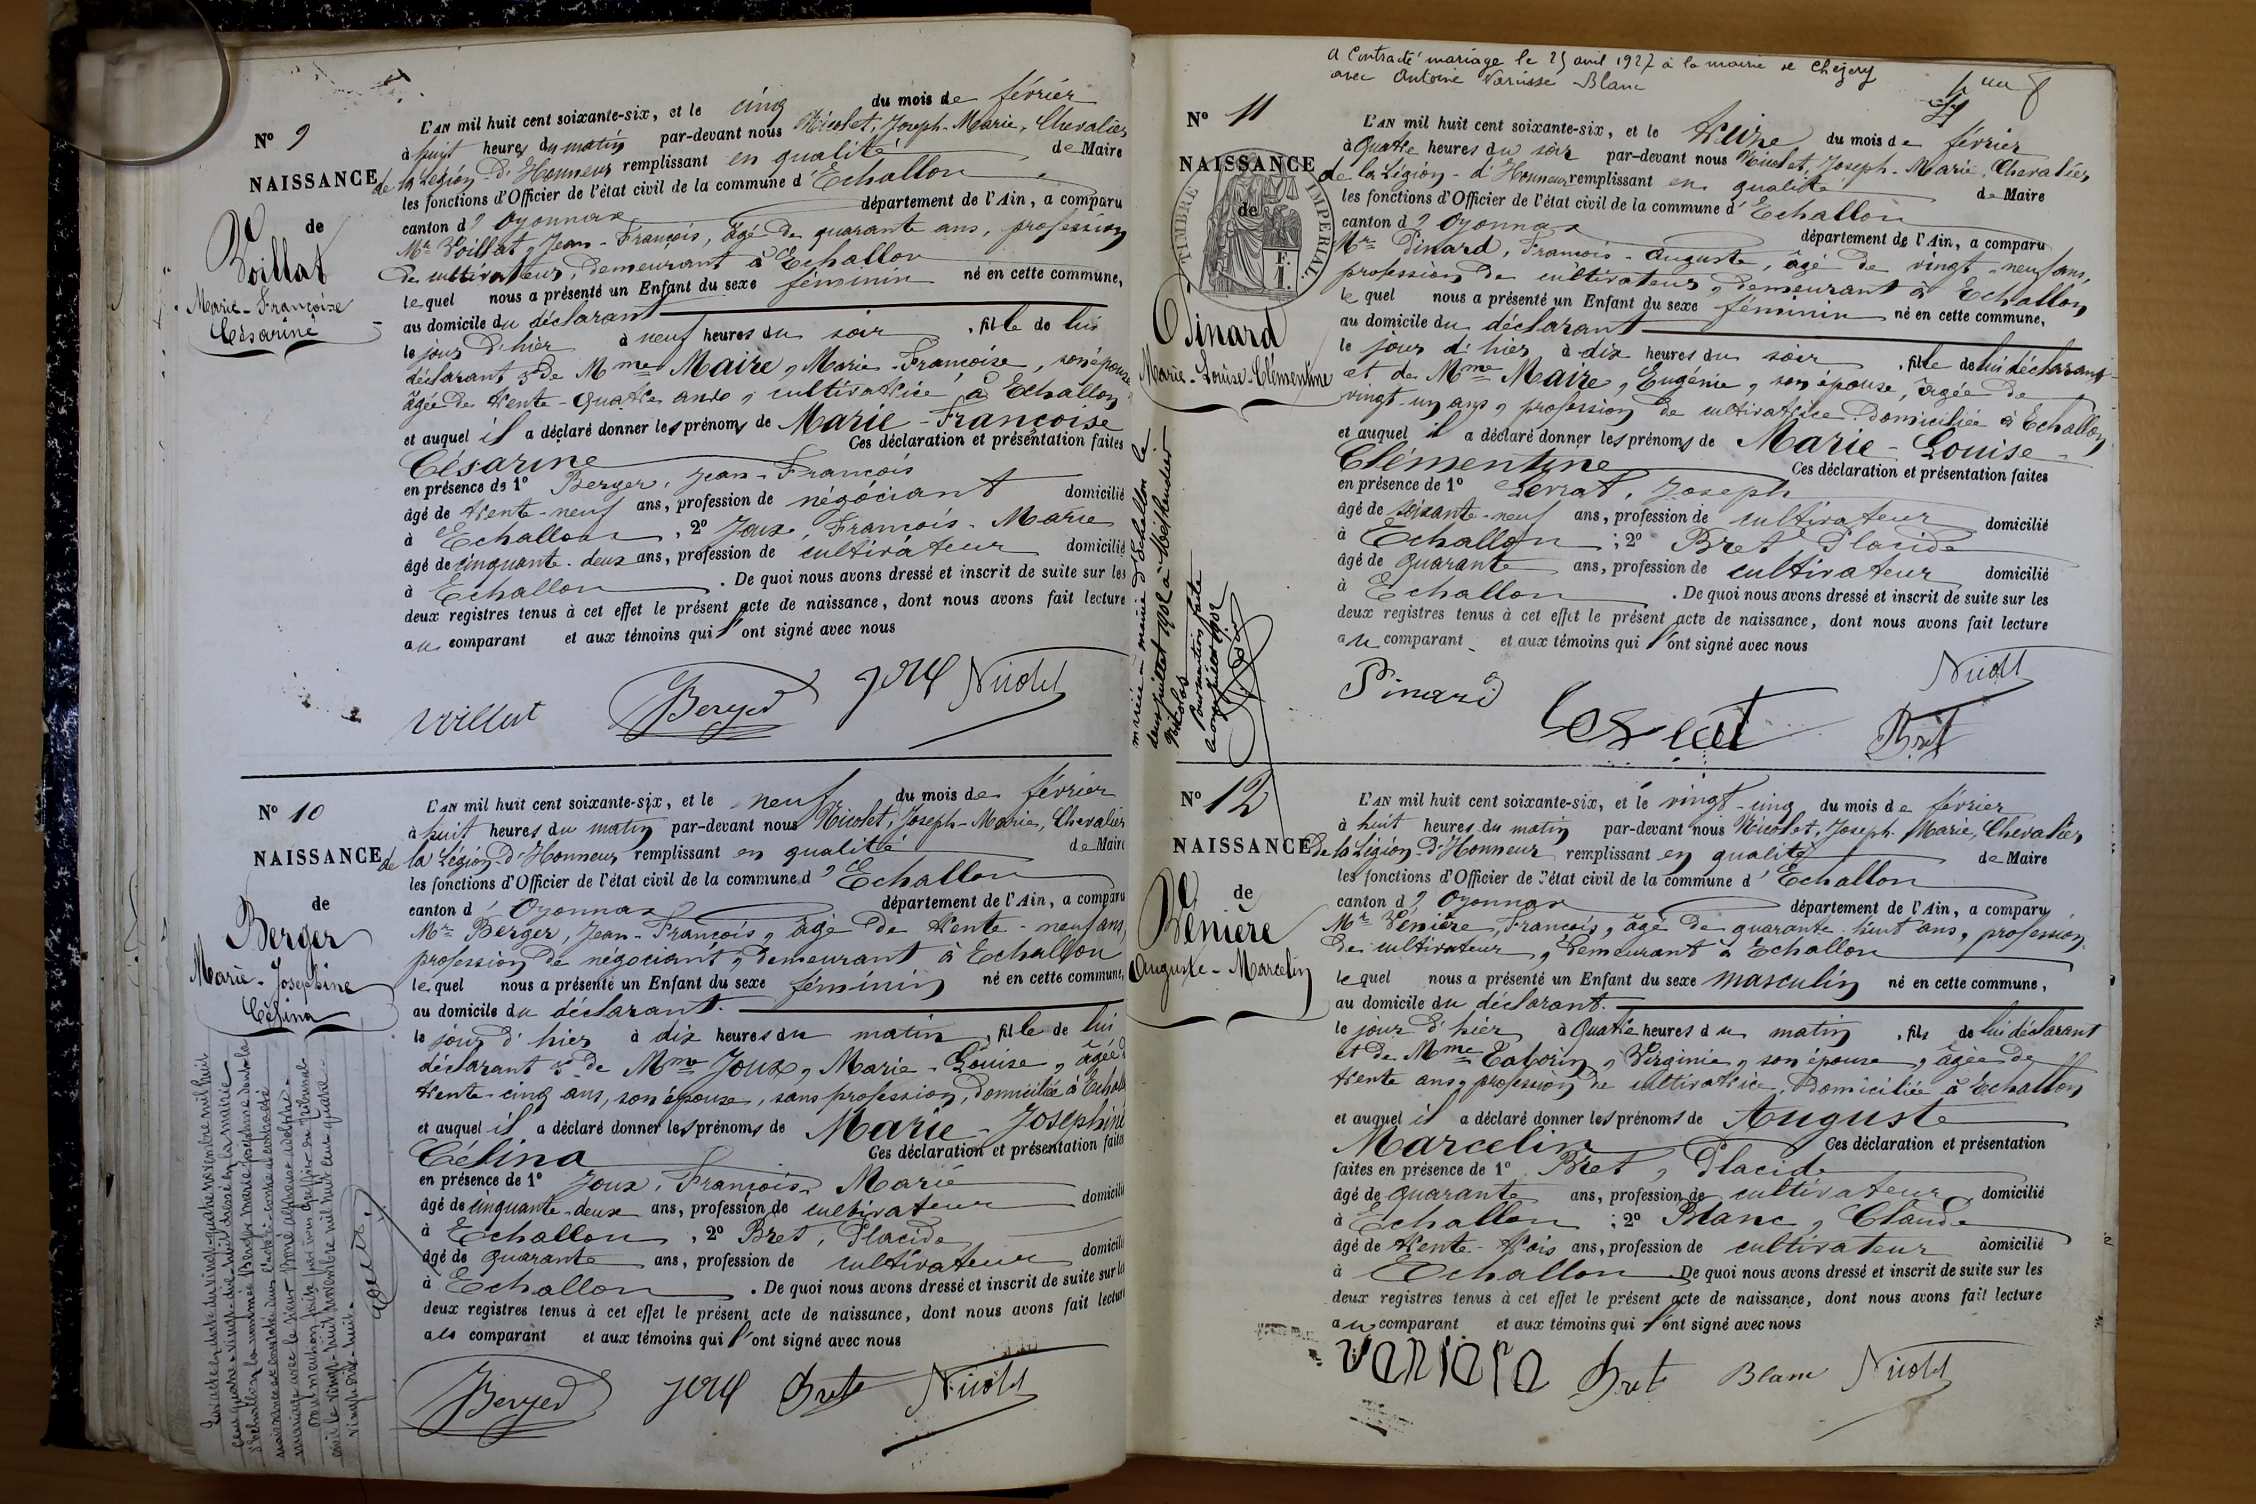 N° 9
NAISSANCE
de
Voillat
Marie-Françoise
Césarine
L'AN mil huit cent soixante-six, et le cinq du mois de février
à huit heures du matin par-devant nous Nicolet, Joseph-Marie, Chevalier
de la Légion-d'Honneur remplissant en qualité de Maire
les fonctions d'Officier de l'état civil de la commune d'Echallon
canton d'Oyonnax département de l'Ain, a comparu
Mr Voillat, Jean-François, âgé de quarante ans, profession
de cultivateur, demeurant à Echallon
lequel nous a présenté un Enfant du sexe féminin né en cette commune,
au domicile du déclarant
le jour d'hier à neuf heures du soir, fille de lui
déclarant & de Mme Maire, Marie-Françoise, son épouse
âgée de trente-quatre ans, cultivatrice à Echallon
et auquel il a déclaré donner les prénoms de Marie-Françoise
Césarine Ces déclaration et présentation faites
en présence de 1° Berger, Jean-François
âgé de trente-neuf ans, profession de négociant domicilié
à Echallon, 2° Joux, François-Marie
âgé de cinquante-deux ans, profession de cultivateur domicilié
à Echallon. De quoi nous avons dressé et inscrit de suite sur les
deux registres tenus à cet effet le présent acte de naissance, dont nous avons fait lecture
au comparant et aux témoins qui l'ont signé avec nous
Voillat Berger Joux Nicolet
N° 10
NAISSANCE
de
Berger
Marie-Josephine
Célina
L'AN mil huit cent soixante-six, et le neuf du mois de février
à huit heures du matin par-devant nous Nicolet, Joseph-Marie, Chevalier
de la Légion-d'Honneur remplissant en qualité de Maire
les fonctions d'Officier de l'état civil de la commune d'Echallon
canton d'Oyonnax département de l'Ain, a comparu
Mr Berger, Jean-François, âgé de trente-neuf ans,
profession de négociant, demeurant à Echallon
lequel nous a présenté un Enfant du sexe féminin né en cette commune,
au domicile du déclarant.
le jour d'hier à dix heures du matin, fille de lui
déclarant & de Mme Joux, Marie-Louise, âgée d
trente-cinq ans, son épouse, sans profession, domiciliée à Echall
et auquel il a déclaré donner les prénoms de Marie-Josephine
Célina Ces déclaration et présentation faites
en présence de 1° Joux, François-Marie
âgé de cinquante-deux ans, profession de cultivateur domicilié
à Echallon, 2° Bret, Placide
âgé de quarante ans, profession de cultivateur domicilié
à Echallon. De quoi nous avons dressé et inscrit de suite sur les
deux registres tenus à cet effet le présent acte de naissance, dont nous avons fait lecture
au comparant et aux témoins qui l'ont signé avec nous
Berger Joux Bret Nicolet
A Contracté mariage le 25 avril 1927 à la mairie de Chézery
avec Antoine Narcisse Blanc
N° 11
NAISSANCE
de
TIMBRE IMPERIAL
F.
1.
Pinard
Marie-Louise-Clémentine
mariée à mairie d'Echallon le
deux juillet 1902 à
Nicolas
Pour mention faite
L'AN mil huit cent soixante-six, et le treize du mois de février
à quatre heures du soir par-devant nous Nicolet, Joseph-Marie, Chevalier
de la Légion-d'Honneur remplissant en qualité de Maire
les fonctions d'Officier de l'état civil de la commune d'Echallon
canton d'Oyonnax département de l'Ain, a comparu
Mr Pinard, François-Auguste, âgé de vingt-neuf ans,
profession de cultivateur, demeurant à Echallon
lequel nous a présenté un Enfant du sexe féminin né en cette commune,
au domicile du déclarant
le jour d'hier à dix heures du soir, fille de lui déclarant
et de Mme Maire, Eugénie, son épouse, âgée de
vingt-un ans, profession de cultivatrice domiciliée à Echallon
et auquel il a déclaré donner les prénoms de Marie-Louise-
Clémentine Ces déclaration et présentation faites
en présence de 1° Serrat, Joseph
âgé de soixante-neuf ans, profession de cultivateur domicilié
à Echallon; 2° Bret Placide
âgé de quarante ans, profession de cultivateur domicilié
à Echallon. De quoi nous avons dressé et inscrit de suite sur les
deux registres tenus à cet effet le présent acte de naissance, dont nous avons fait lecture
au comparant et aux témoins qui l'ont signé avec nous
Pinard Nicolet
Bret
N° 12
NAISSANCE
de
Vénière
Auguste-Marcelin
L'AN mil huit cent soixante-six, et le vingt-cinq du mois de février
à huit heures du matin par-devant nous Nicolet, Joseph-Marie, Chevalier
de la Légion-d'Honneur remplissant en qualité de Maire
les fonctions d'Officier de l'état civil de la commune d'Echallon
canton d'Oyonnax département de l'Ain, a comparu
Mr Vénière, François, âgé de quarante-huit ans, profession
de cultivateur, demeurant à Echallon
lequel nous a présenté un Enfant du sexe masculin né en cette commune,
au domicile du déclarant.
le jour d'hier à quatre heures du matin, fils de lui déclarant
et de Mme Tavorin, Virginie, son épouse, âgée de
trente ans, profession de cultivatrice, domiciliée à Echallon
et auquel il a déclaré donner les prénoms de Auguste
Marcelin Ces déclaration et présentation
faites en présence de 1° Bret, Placide
âgé de quarante ans, profession de cultivateur domicilié
à Echallon; 2° Blanc, Claude
âgé de trente-trois ans, profession de cultivateur domicilié
à Echallon De quoi nous avons dressé et inscrit de suite sur les
deux registres tenus à cet effet le présent acte de naissance, dont nous avons fait lecture
au comparant et aux témoins qui l'ont signé avec nous
Bret Blanc Nicolet